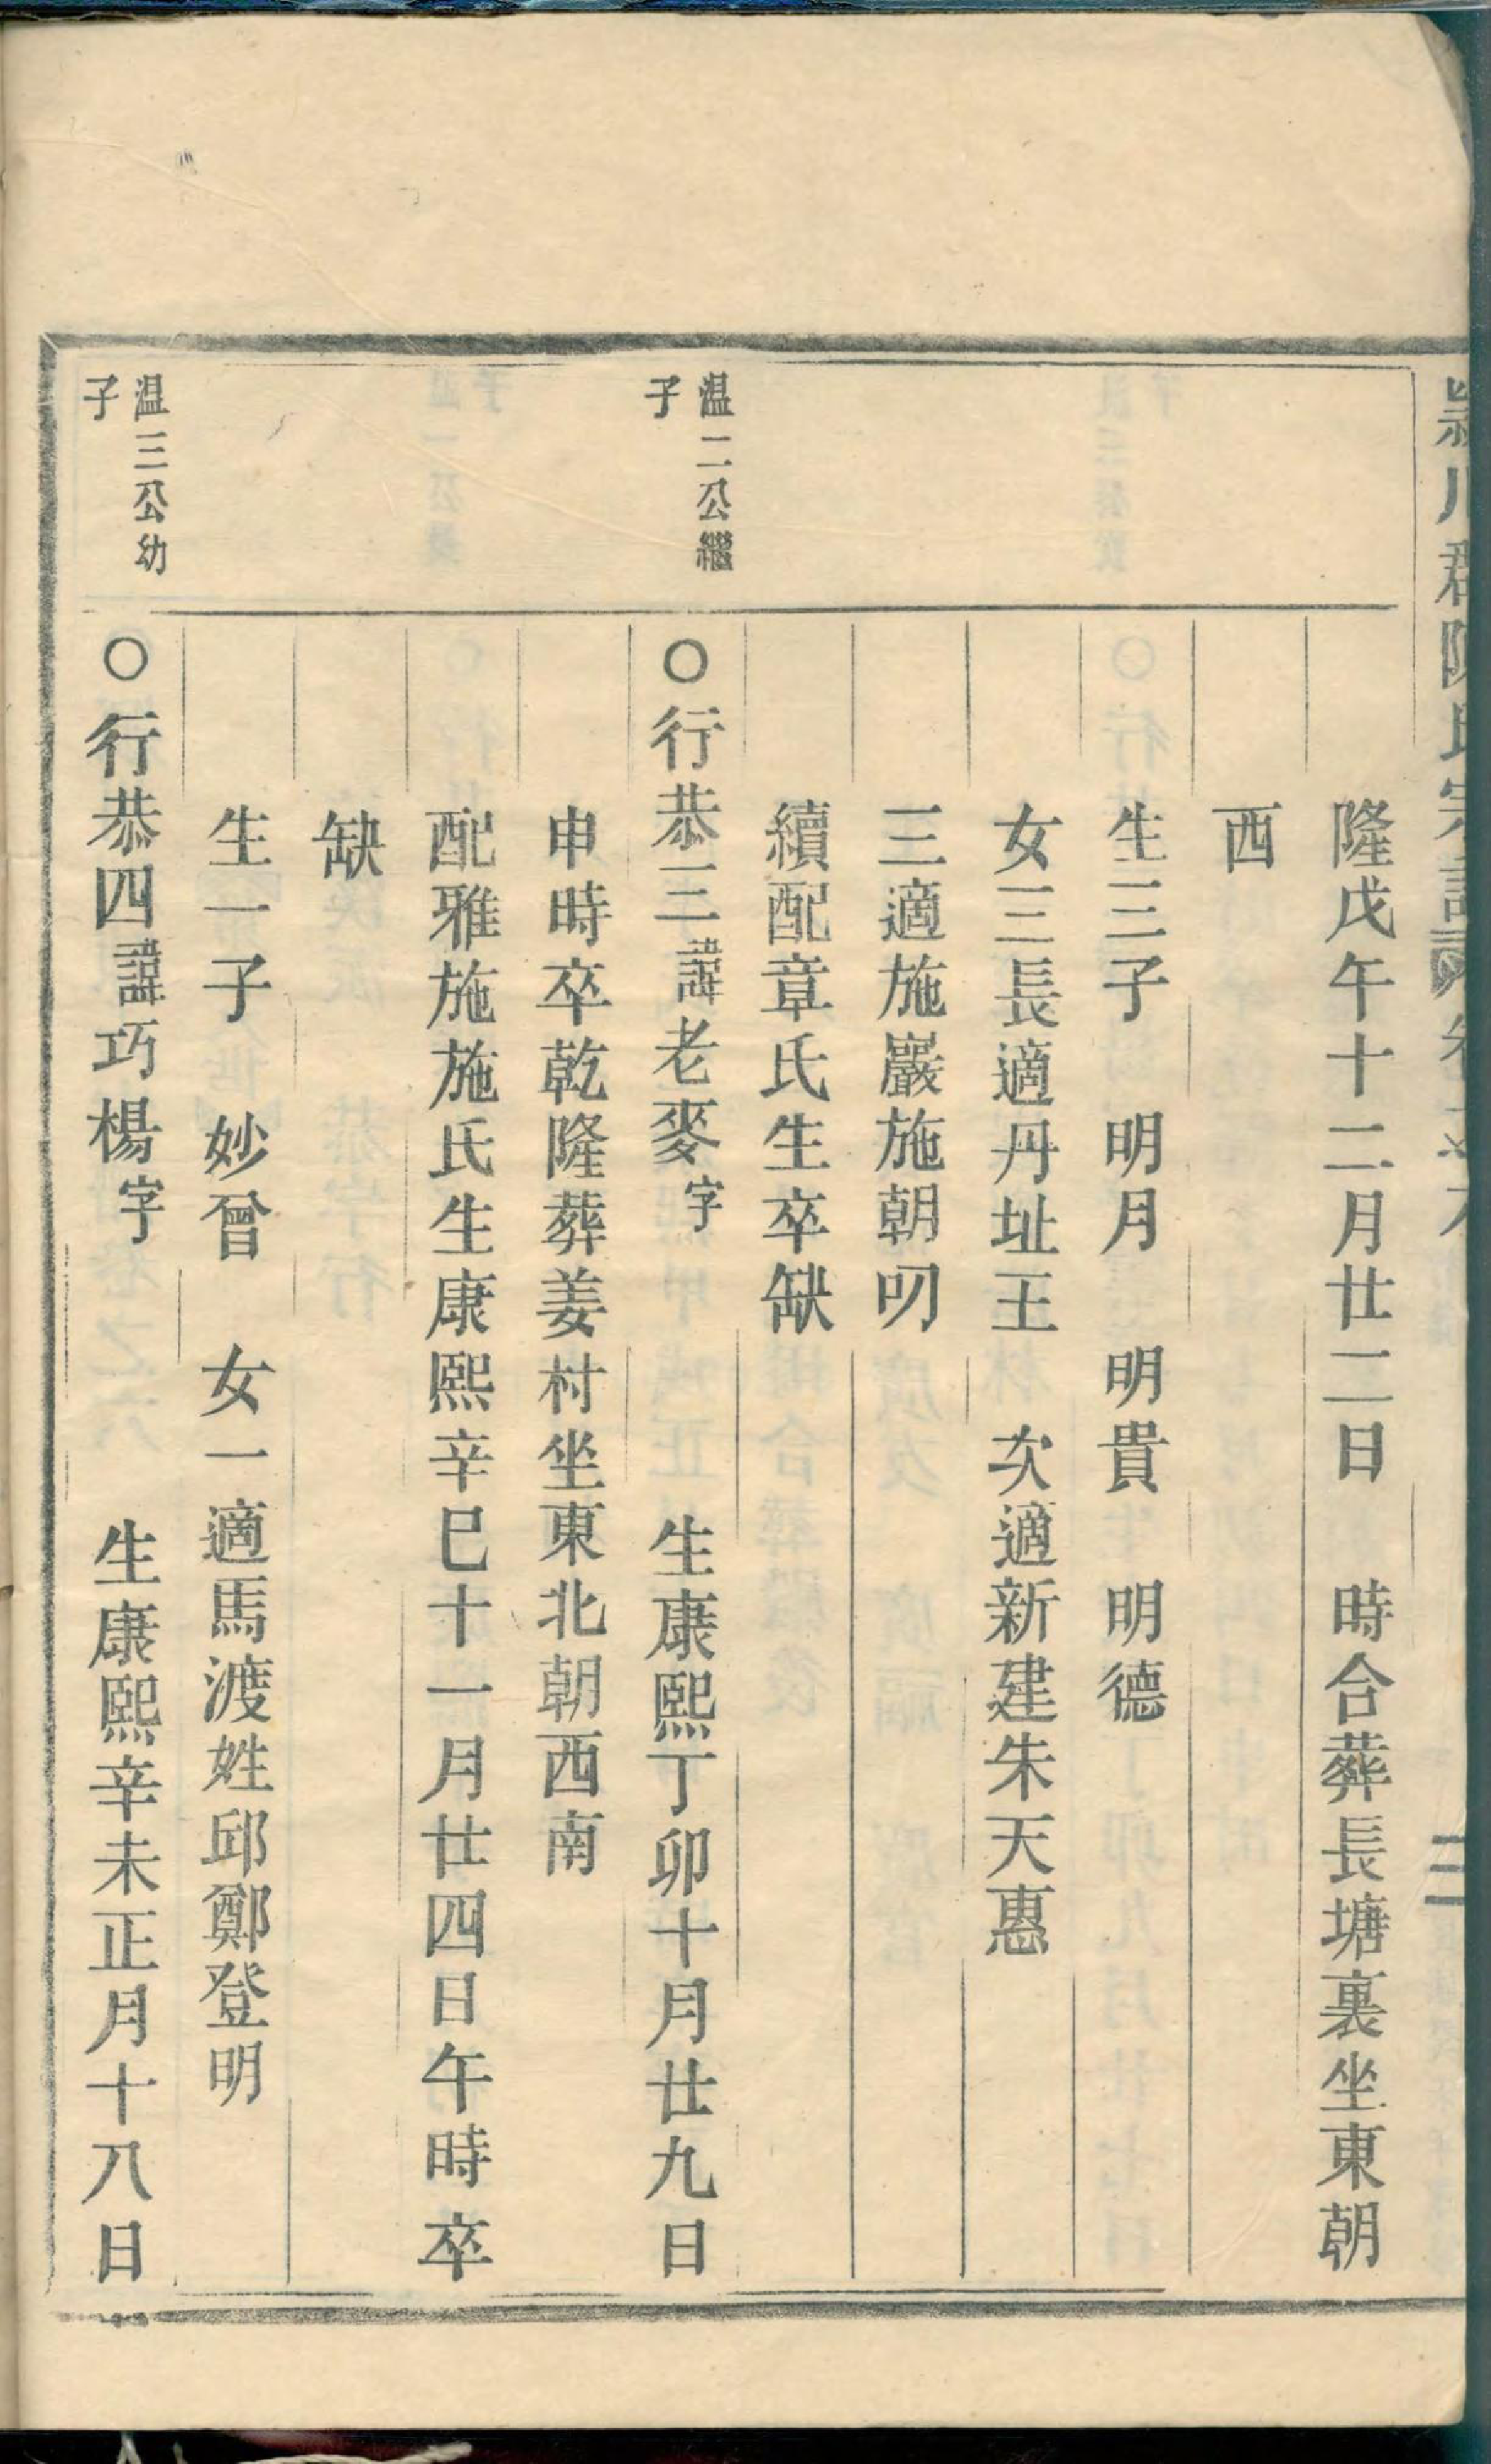 潁川郡陳氏宗譜 卷之六 三
隆戊午十二月廿二日 時合葬長塘裏坐東朝
西
生三子 明月 明貴 明德
女三長適丹址王 次適新建朱天惠
三適施巖施朝叨
續配章氏生卒缺
温二公繼子
○行恭三諱老麥字 生康熙丁卯十月廿九日
申時卒乾隆葬姜村坐東北朝西南
配雅施施氏生康熙辛巳十一月廿四日午時卒
缺
生一子 妙曾 女一適馬渡姓邱鄭登明
温三公幼子
○行恭四諱巧楊字 生康熙辛未正月十八日